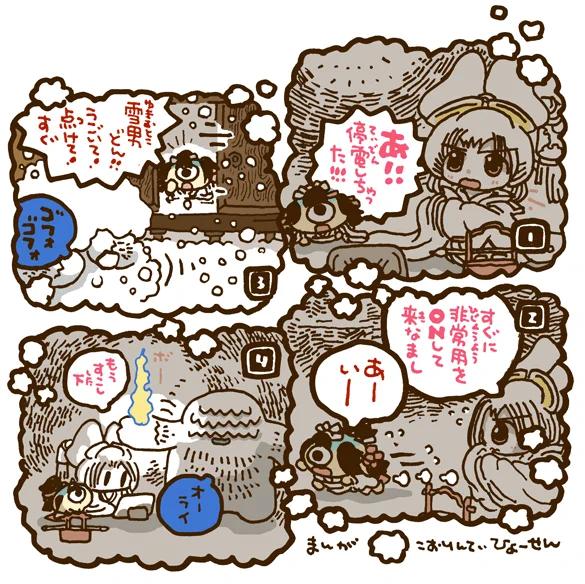 あ!!
停電しちゃっ
た!!!
ていでん
1
すぐに
非常用を
ONして
来なまし
2
あー
いー
雪男
どん!!
うごいて!
点けて!
すぐ
ゆきおとこ
ゴフォ
ゴフォ
3
ボー
もう
すこし
下
した
オー
ライ
4
まんが
こおりんてぃ ひょーせん